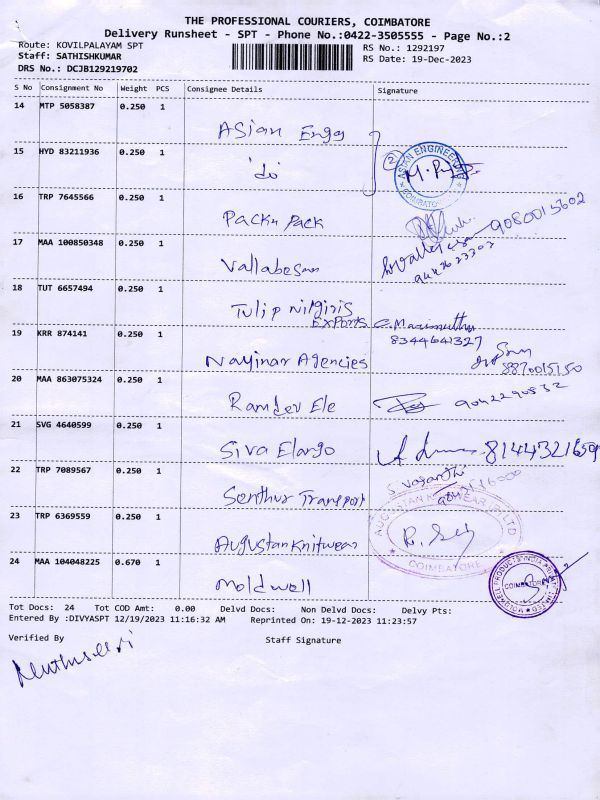 THE PROFESSIONAL COURIERS, COIMBATORE
Delivery Runsheet - SPT - Phone No.:0422-3505555 - Page No.:2
Route: KOVILPALAYAM SPT
RS No.: 1292197
Staff: SATHISHKUMAR
RS Date: 19-Dec-2023
DRS No.: DCJB129219702
S No Consignment No Weight PCS Consignee Details Signature
14 MTP 5058387 0.250 1
Asian Engg
15 HYD 83211936 0.250 1
'do'
2
ASIAN ENGINEERING
COIMBATORE
16 TRP 7645566 0.250 1
Pack n Pack
9080015602
17 MAA 100850348 0.250 1
Vallabesan
18 TUT 6657494 0.250 1
Tulip Nilgiris
Exports
C. Marimuthu
8344641327
19 KRR 874141 0.250 1
Nayinar Agencies
8870015150
20 MAA 863075324 0.250 1
Ramdev Ele
9042290832
21 SVG 4640599 0.250 1
Siva Elango
8144321659
22 TRP 7089567 0.250 1
Senthur Transport
23 TRP 6369559 0.250 1
Augustan Knitwear
AUGUSTAN KNITWEAR (P) LTD
COIMBATORE
24 MAA 104048225 0.670 1
Moldwell
MOLDWELL PRODUCTS INDIA
COIMBATORE
Tot Docs: 24 Tot COD Amt: 0.00 Delvd Docs: Non Delvd Docs: Delvy Pts:
Entered By :DIVYASPT 12/19/2023 11:16:32 AM Reprinted On: 19-12-2023 11:23:57
Verified By
Staff Signature